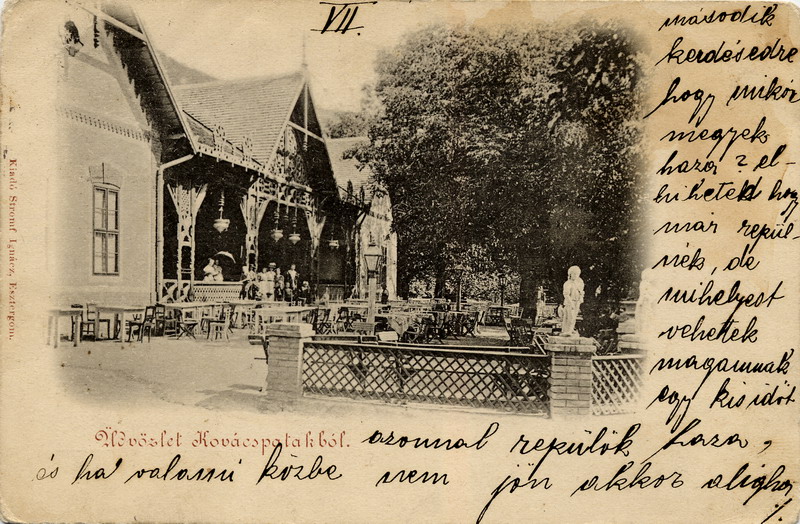 VII.
második
kerdésedre
hogy mikor
megyek
haza? el-
hiheted hogy
már repül-
nék, de
mihelyest
vehetek
magamnak
egy kis időt
Üdvözlet Kovácspatakból.
azonnal repülök haza,
és ha valami közbe nem jön akkor aligha
·/.
Kiadó Stromf Ignácz, Esztergom.